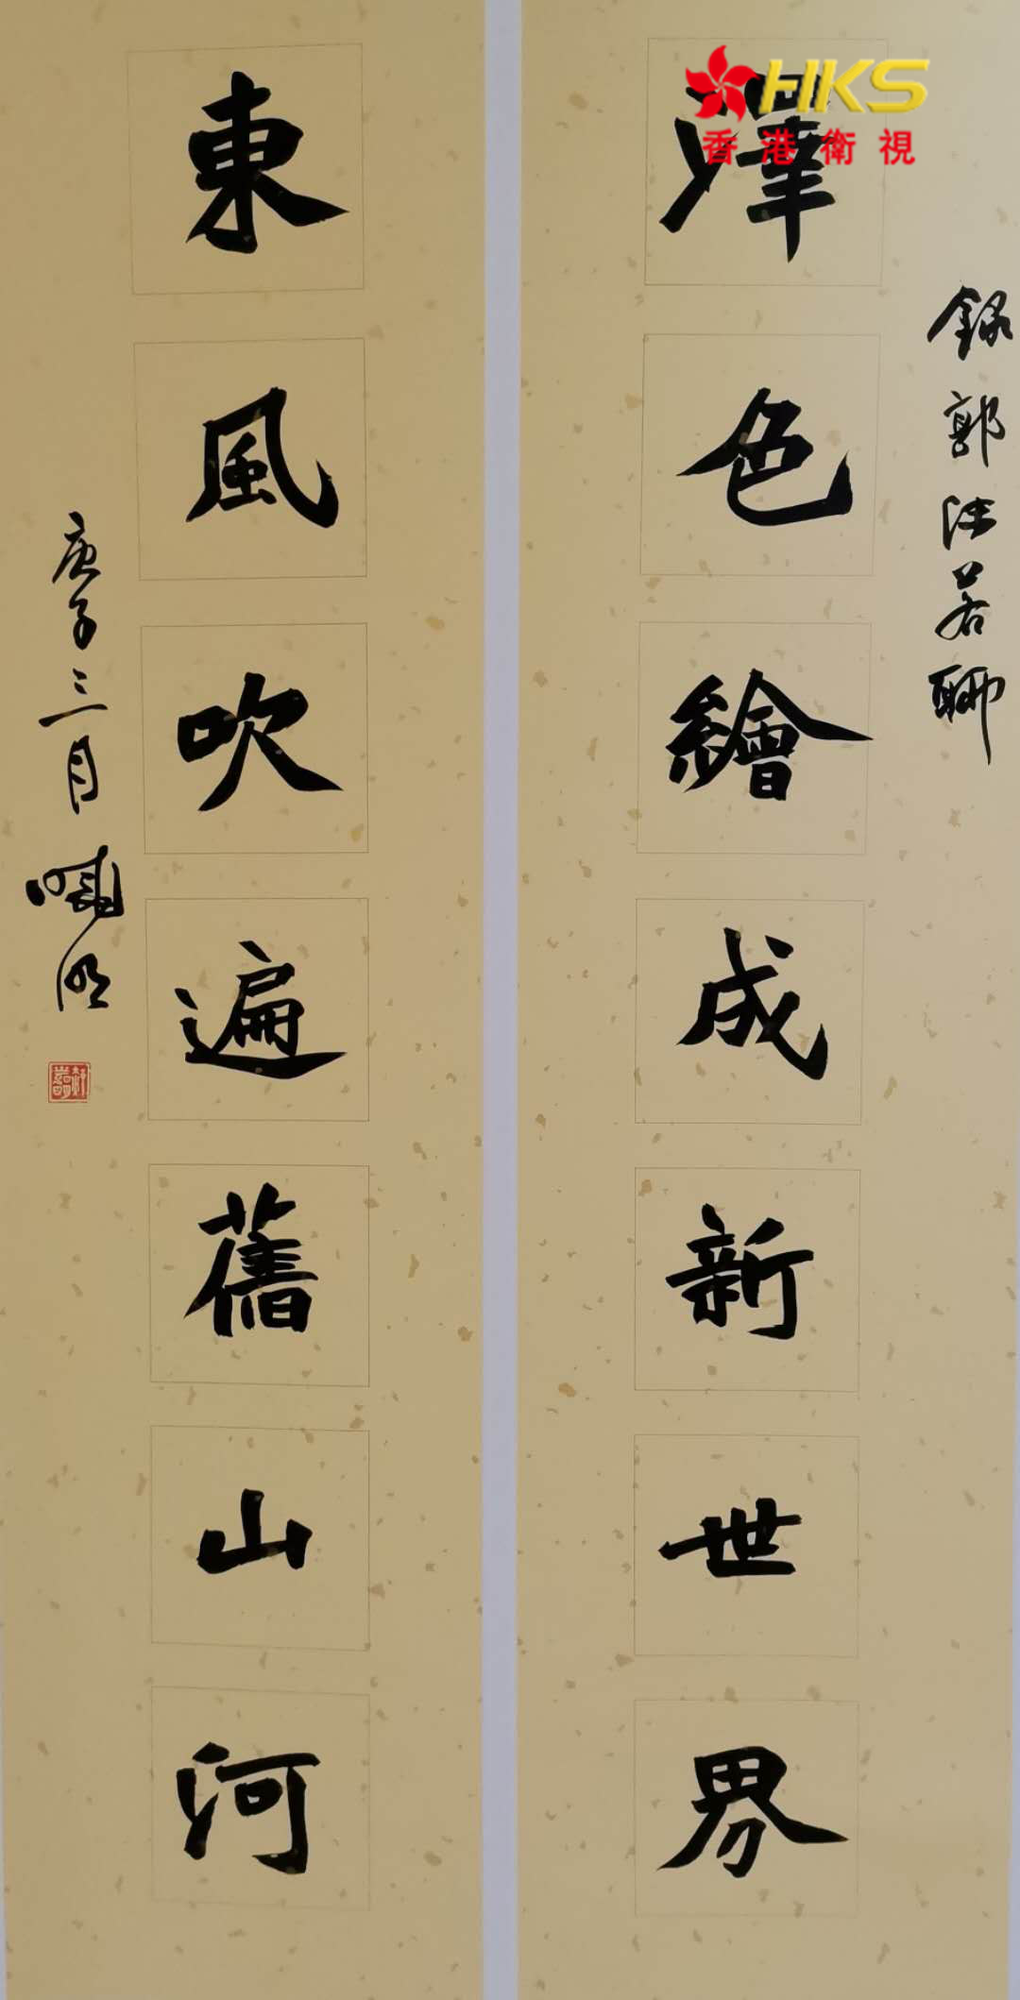 HKS
香港衛視
錄郭沫若聯
澤色繪成新世界
東風吹遍舊山河
庚子三月